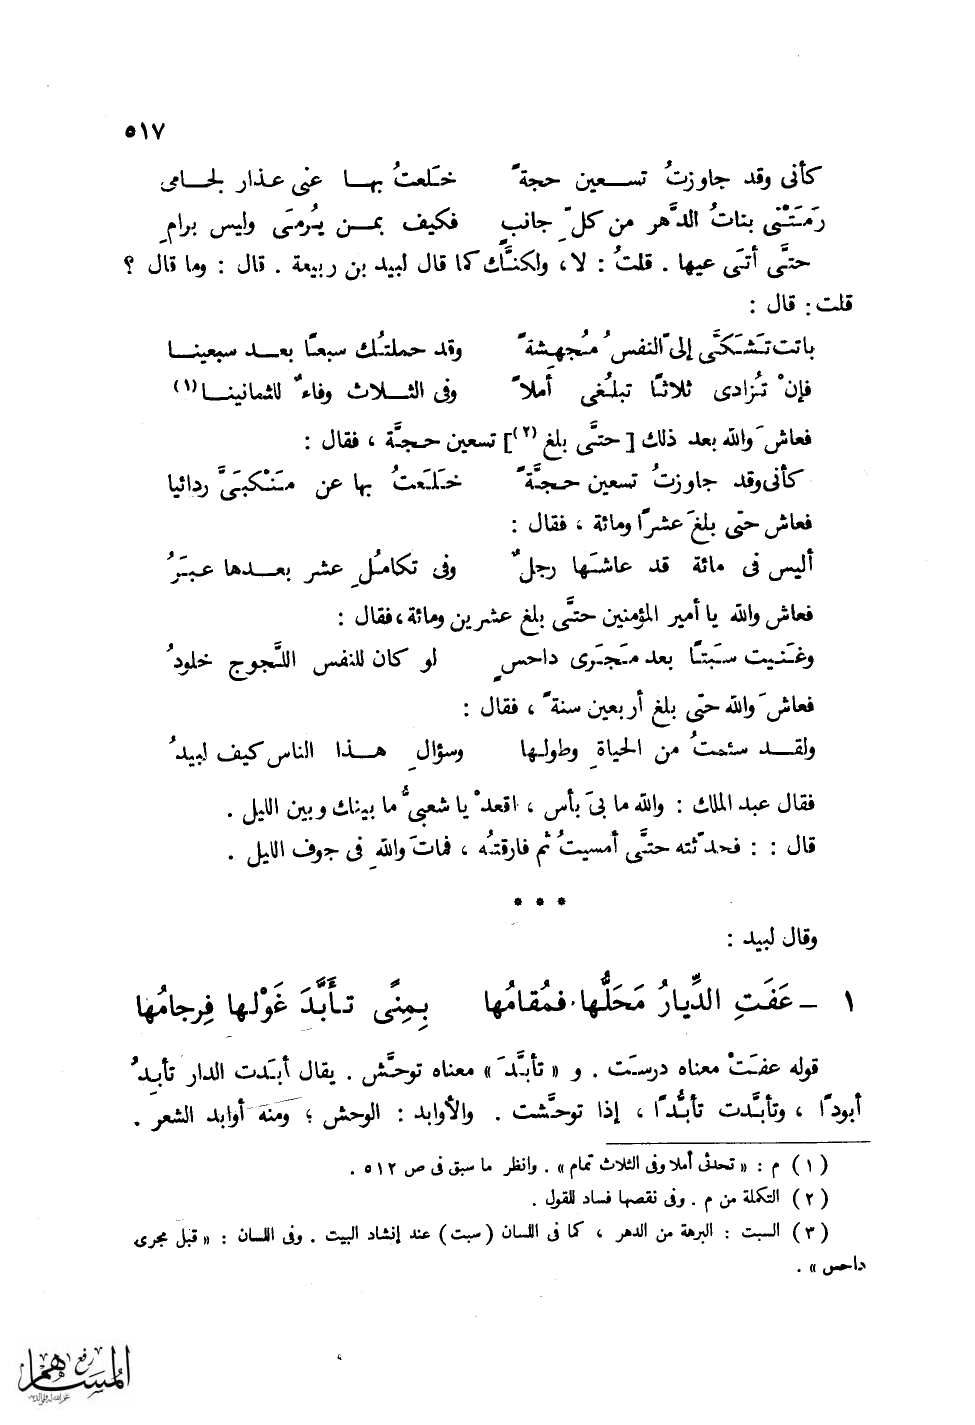 ٥١٧
كأنى وقد جاوزتُ تسعين حجةً خلعتُ بها عنى عذار لجامى
رَمَتْنى بناتُ الدَّهر من كلِّ جانبٍ فكيف بمن يُرمَى وليس برامِ
حتَّى أتَى عيها . قلتُ : لا، ولكنَّك كما قال لبيد بن ربيعة . قال : وما قال ؟
قلت : قال :
باتت تَشَكَّى إلىّ النفسُ مُجهِشةً وقد حملتُك سبعًا بعد سبعينا
فإنْ تُزادى ثلاثًا تبلُغى أملاً وفى الثلاث وفاءٌ للثمانينا(١)
فعاشَ والله بعد ذلك [ حتَّى بلغ (٢)] تسعين حجَّة ، فقال :
كأنى وقد جاوزتُ تسعين حجَّةً خلَعتُ بها عن مَنْكبَىَّ ردائيا
فعاش حتى بلغَ عشرًا ومائة ، فقال :
أليس فى مائة قد عاشَها رجلٌ وفى تكامُلِ عشر بعدها عبَرُ
فعاش والله يا أمير المؤمنين حتَّى بلغ عشرين ومائة، فقال :
وغَنيت سَبتًا بعد مَجَرى داحسٍ لو كان للنفس اللَّجوج خلودُ
فعاشَ والله حتى بلغ أربعين سنةً ، فقال :
ولقد سئمتُ من الحياةِ وطولها وسؤالِ هذا الناس كيف لبيدُ
فقال عبد الملك : والله ما بىَ بأس ، اقعدْ يا شعبىُّ ما بينك وبين الليل .
قال : : فحدّثته حتَّى أمسيتُ ثم فارقتُه ، فماتَ واللهِ فى جوف الليل .
* * *
وقال لبيد :
١ – عَفَتِ الدِّيارُ مَحَلُّها فمُقامُها بِمِنًى تأَبَّدَ غَوْلها فرِجامُها
قوله عفتْ معناه درسَت . و « تأبَّدَ » معناه توحَّش . يقال أبَدت الدار تأبِدُ
أبودًا ، وتأبَّدت تأبُّدًا ، إذا توحَّشت . والأوابد : الوحش ؛ ومنه أوابد الشعر .
(١) م : « تحدثى أملا وفى الثلاث تمام » . وانظر ما سبق فى ص ٥١٢ .
(٢) التكملة من م . وفى نقصها فساد للقول .
(٣) السبت : البرهة من الدهر ، كما فى اللسان (سبت) عند إنشاد البيت . وفى اللسان : « قبل مجرى
داحس » .
رفع
المساهم